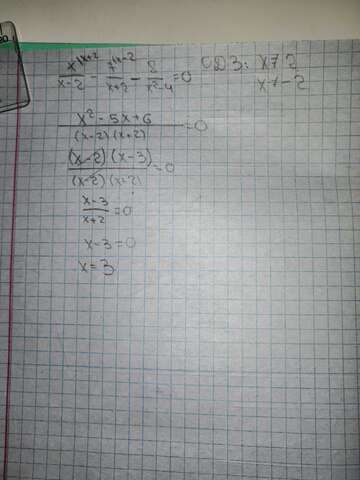 x^{\x+2}/(x-2) - 7^{\x-2}/(x+2) - 8/(x²-4) = 0 ОДЗ: x≠2
x≠-2
(x²-5x+6)/((x-2)(x+2)) = 0
((x-2)(x-3))/((x-2)(x+2)) = 0
(x-3)/(x+2) = 0
x-3=0
x=3